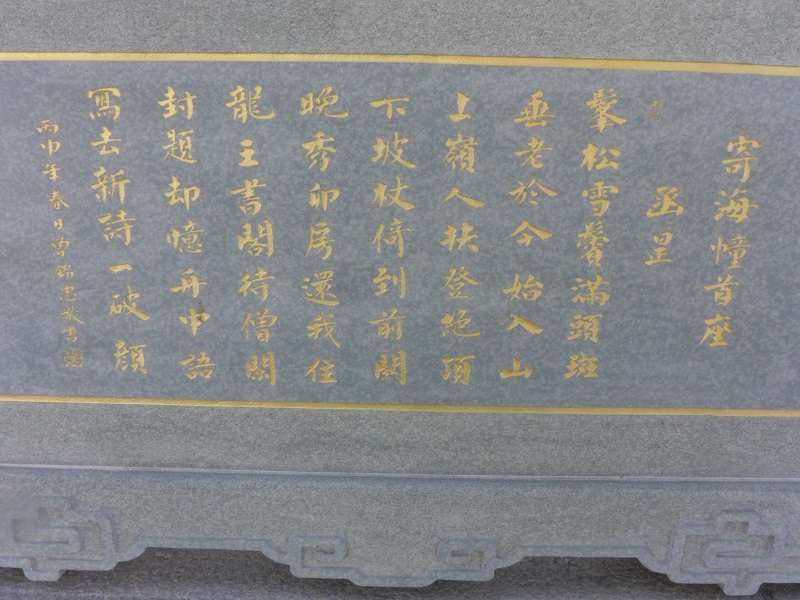 寄海幢首座
函昰
鬖松雪鬢滿頭斑
垂老於今始入山
上嶺人扶登絕頂
下坡杖倚到前關
晚秀卯房還我住
龍王書閣待僧閒
封題却憶舟中語
寫去新詩一破顏
丙申年春日曾